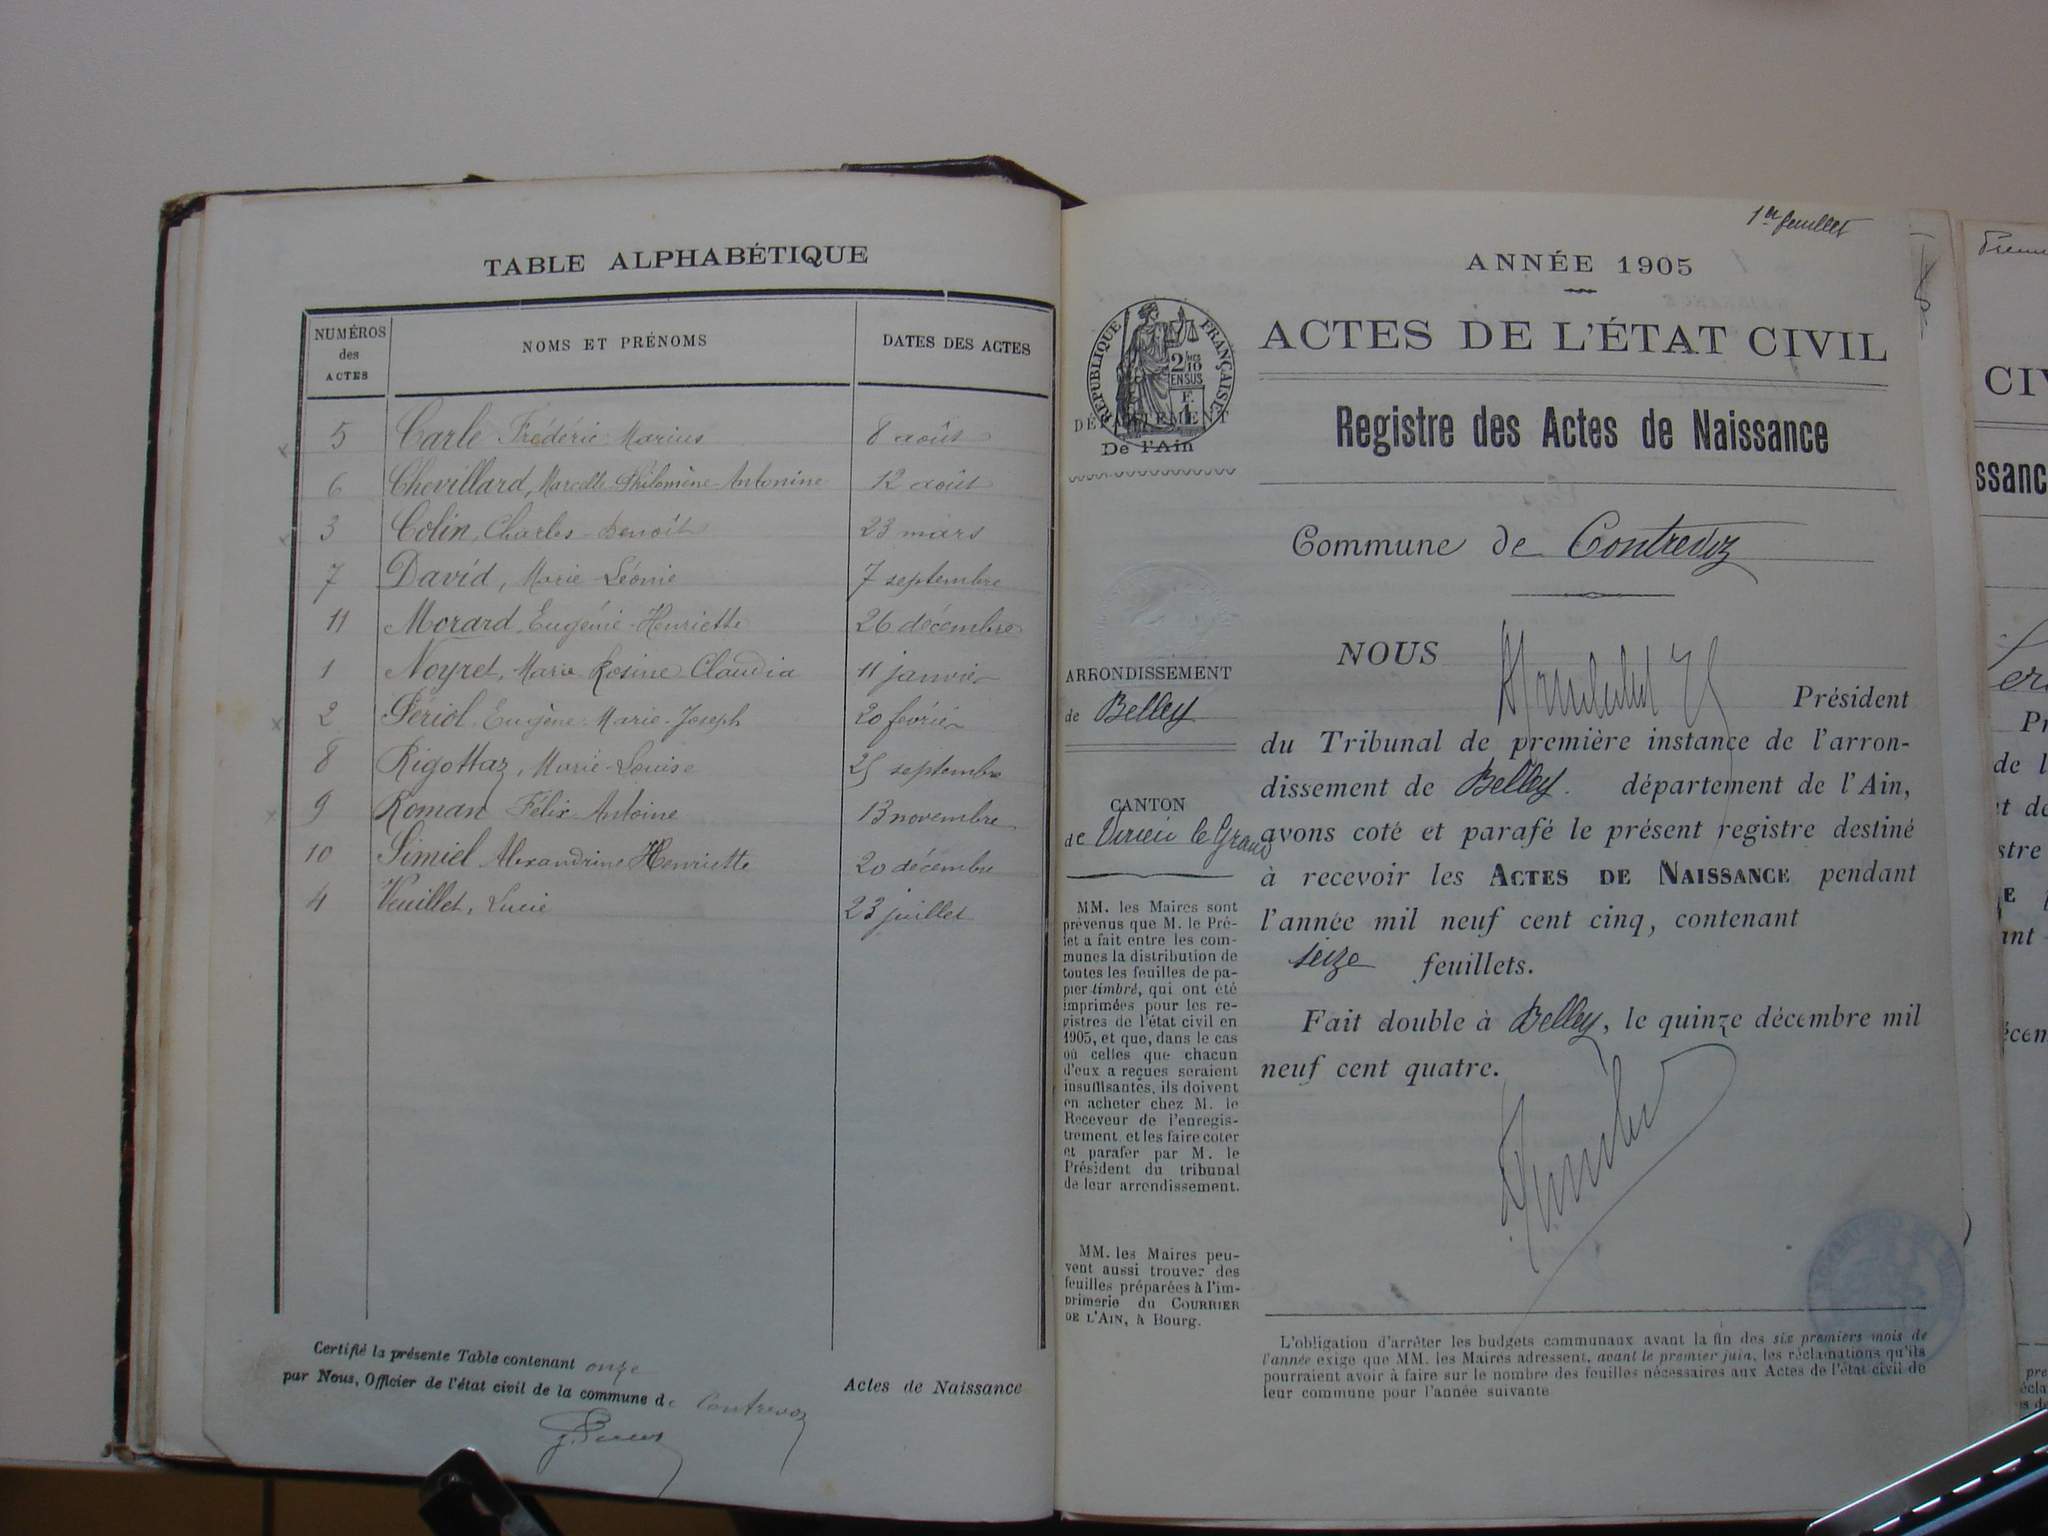 TABLE ALPHABÉTIQUE
NUMÉROS des ACTES NOMS ET PRÉNOMS DATES DES ACTES
5 Carle Frédéric Marius 8 août
6 Chevillard, Marcelle Philomène Antonine 12 août
3 Colin, Charles Benoît 23 mars
7 David, Marie Léonie 7 septembre
11 Morard, Eugénie Henriette 26 décembre
1 Noyret, Marie Rosine Claudia 11 janvier
2 Périol Eugène Marie Joseph 20 février
8 Rigottaz, Marie-Louise 25 septembre
9 Roman Félix Antoine 13 novembre
10 Simiel Alexandrine Henriette 20 décembre
4 Veuillet, Lucie 23 juillet
Certifié la présente Table contenant onze Actes de Naissance
par Nous, Officier de l'état civil de la commune de Contrevoz
1er feuillet
ANNÉE 1905
ACTES DE L'ÉTAT CIVIL
Registre des Actes de Naissance
Commune de Contrevoz
RÉPUBLIQUE FRANÇAISE
2/10 EN SUS
DÉPARTEMENT
De l'Ain
ARRONDISSEMENT
de Belley
CANTON
de Virieu le Grand
MM. les Maires sont
prévenus que M. le Pré-
fet a fait entre les com-
munes la distribution de
toutes les feuilles de pa-
pier timbré, qui ont été
imprimées pour les re-
gistres de l'état civil en
1905, et que, dans le cas
où celles que chacun
d'eux a reçues seraient
insuffisantes, ils doivent
en acheter chez M. le
Receveur de l'enregis-
trement et les faire coter
et parafer par M. le
Président du tribunal
de leur arrondissement.
MM. les Maires peu-
vent aussi trouver des
feuilles préparées à l'im-
primerie du COURRIER
DE L'AIN, à Bourg.
NOUS
Président
du Tribunal de première instance de l'arron-
dissement de Belley. département de l'Ain,
avons coté et parafé le présent registre destiné
à recevoir les ACTES DE NAISSANCE pendant
l'année mil neuf cent cinq, contenant
seize feuillets.
Fait double à Belley, le quinze décembre mil
neuf cent quatre.
L'obligation d'arrêter les budgets communaux avant la fin des six premiers mois de
l'année exige que MM. les Maires adressent, avant le premier juin, les réclamations qu'ils
pourraient avoir à faire sur le nombre des feuilles nécessaires aux Actes de l'état civil de
leur commune pour l'année suivante